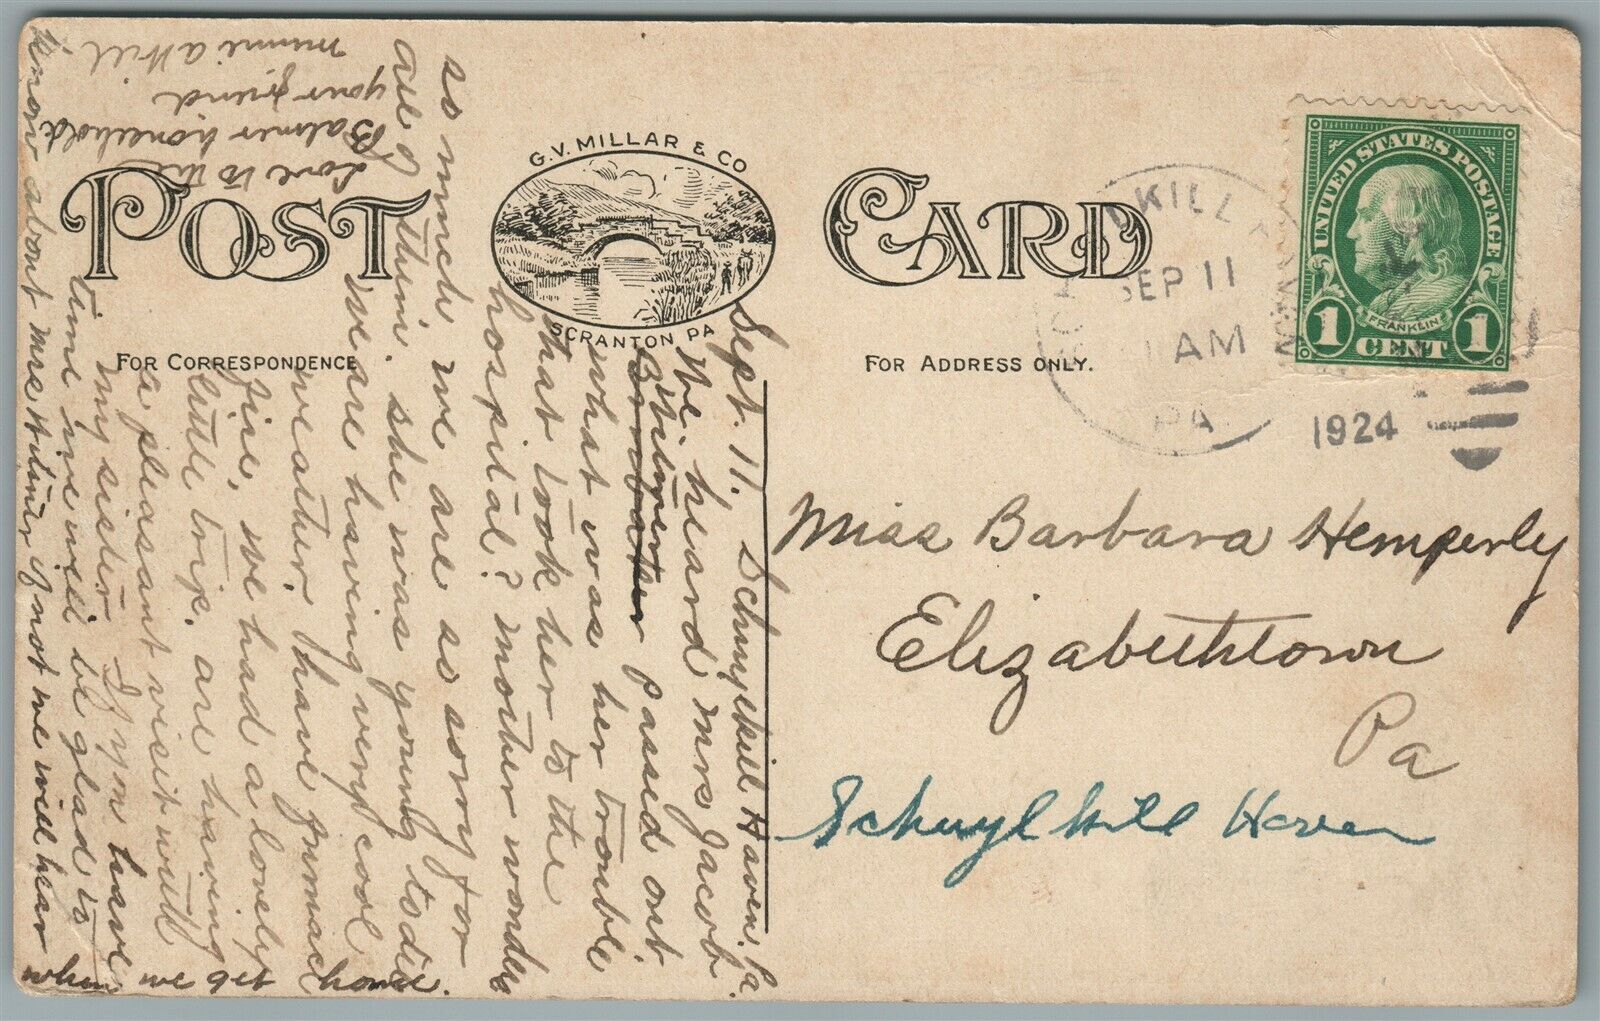 POST CARD
G.V. MILLAR & CO
SCRANTON PA
FOR CORRESPONDENCE
FOR ADDRESS ONLY.
SEP 11
AM
PA.
1924
UNITED STATES POSTAGE
FRANKLIN
1 CENT 1
Miss Barbara Hemperly
Elizabethtown
Pa
Schuylkill Haven
Sept. 11. Schuylkill Haven. Pa.
We heard mrs Jacob
passed out
what was her trouble
that took her to the
hospital? mother wonders
so much we are so sorry for
all of them. she was young to die
we are having very cool
weather, have
fine, we had a lovely
little trip. are having
a pleasant visit with
my sister If you have
time we will be glad to
know about mre
if not we will hear
when we get home.
Love to the
Balmer household
your friend